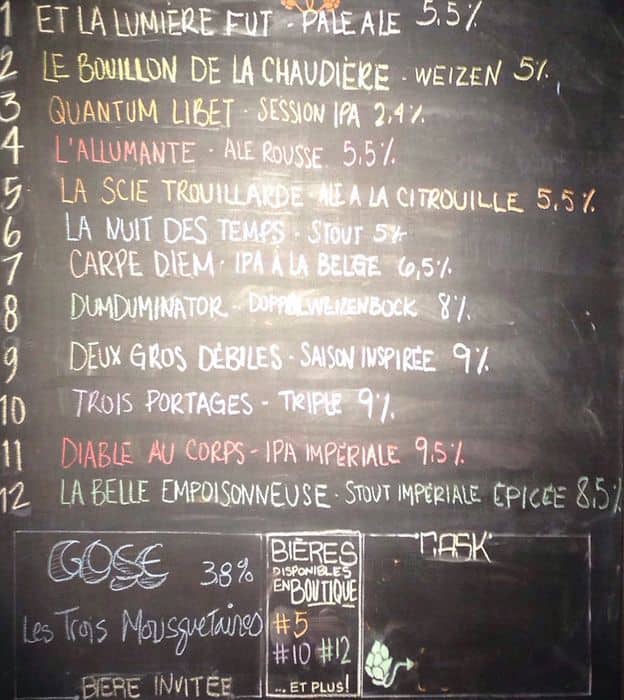 1 ET LA LUMIÈRE FUT - PALE ALE 5,5%
2 LE BOUILLON DE LA CHAUDIÈRE - WEIZEN 5%
3 QUANTUM LIBET - SESSION IPA 2,4%
4 L'ALLUMANTE - ALE ROUSSE 5,5%
5 LA SCIE TROUILLARDE - ALE A LA CITROUILLE 5.5%
6 LA NUIT DES TEMPS - STOUT 5%
7 CARPE DIEM - IPA À LA BELGE 6,5%
8 DUMDUMINATOR - DOPPELWEIZENBOCK 8%
9 DEUX GROS DÉBILES - SAISON INSPIRÉE 9%
10 TROIS PORTAGES - TRIPLE 9%
11 DIABLE AU CORPS - IPA IMPÉRIALE 9,5%
12 LA BELLE EMPOISONNEUSE - STOUT IMPÉRIALE ÉPICÉE 8,5%
GOSE 3.8%
Les Trois Mousquetaires
BIÈRE INVITÉE
BIÈRES
DISPONIBLES
EN BOUTIQUE
#5
#10 #12
... ET PLUS!
CASK